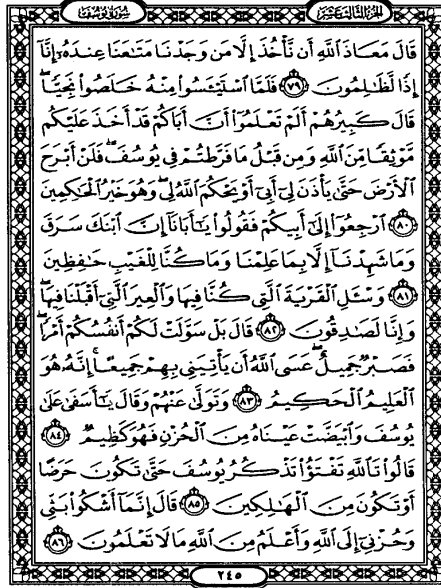 الجزء الثالث عشر
سورة يوسف
قَالَ مَعَاذَ ٱللَّهِ أَن نَّأْخُذَ إِلَّا مَن وَجَدْنَا مَتَٰعَنَا عِندَهُۥٓ إِنَّآ
إِذًا لَّظَٰلِمُونَ ٧٩ فَلَمَّا ٱسْتَيْـَٔسُوا۟ مِنْهُ خَلَصُوا۟ نَجِيًّا ۖ
قَالَ كَبِيرُهُمْ أَلَمْ تَعْلَمُوٓا۟ أَنَّ أَبَاكُمْ قَدْ أَخَذَ عَلَيْكُم
مَّوْثِقًا مِّنَ ٱللَّهِ وَمِن قَبْلُ مَا فَرَّطتُمْ فِى يُوسُفَ ۖ فَلَنْ أَبْرَحَ
ٱلْأَرْضَ حَتَّىٰ يَأْذَنَ لِىٓ أَبِىٓ أَوْ يَحْكُمَ ٱللَّهُ لِى ۖ وَهُوَ خَيْرُ ٱلْحَٰكِمِينَ
٨٠ ٱرْجِعُوٓا۟ إِلَىٰٓ أَبِيكُمْ فَقُولُوا۟ يَٰٓأَبَانَآ إِنَّ ٱبْنَكَ سَرَقَ
وَمَا شَهِدْنَآ إِلَّا بِمَا عَلِمْنَا وَمَا كُنَّا لِلْغَيْبِ حَٰفِظِينَ
٨١ وَسْـَٔلِ ٱلْقَرْيَةَ ٱلَّتِى كُنَّا فِيهَا وَٱلْعِيرَ ٱلَّتِىٓ أَقْبَلْنَا فِيهَا ۖ
وَإِنَّا لَصَٰدِقُونَ ٨٢ قَالَ بَلْ سَوَّلَتْ لَكُمْ أَنفُسُكُمْ أَمْرًا ۖ
فَصَبْرٌ جَمِيلٌ ۖ عَسَى ٱللَّهُ أَن يَأْتِيَنِى بِهِمْ جَمِيعًا ۚ إِنَّهُۥ هُوَ
ٱلْعَلِيمُ ٱلْحَكِيمُ ٨٣ وَتَوَلَّىٰ عَنْهُمْ وَقَالَ يَٰٓأَسَفَىٰ عَلَىٰ
يُوسُفَ وَٱبْيَضَّتْ عَيْنَاهُ مِنَ ٱلْحُزْنِ فَهُوَ كَظِيمٌ ٨٤
قَالُوا۟ تَٱللَّهِ تَفْتَؤُا۟ تَذْكُرُ يُوسُفَ حَتَّىٰ تَكُونَ حَرَضًا
أَوْ تَكُونَ مِنَ ٱلْهَٰلِكِينَ ٨٥ قَالَ إِنَّمَآ أَشْكُوا۟ بَثِّى
وَحُزْنِىٓ إِلَى ٱللَّهِ وَأَعْلَمُ مِنَ ٱللَّهِ مَا لَا تَعْلَمُونَ ٨٦
٢٤٥